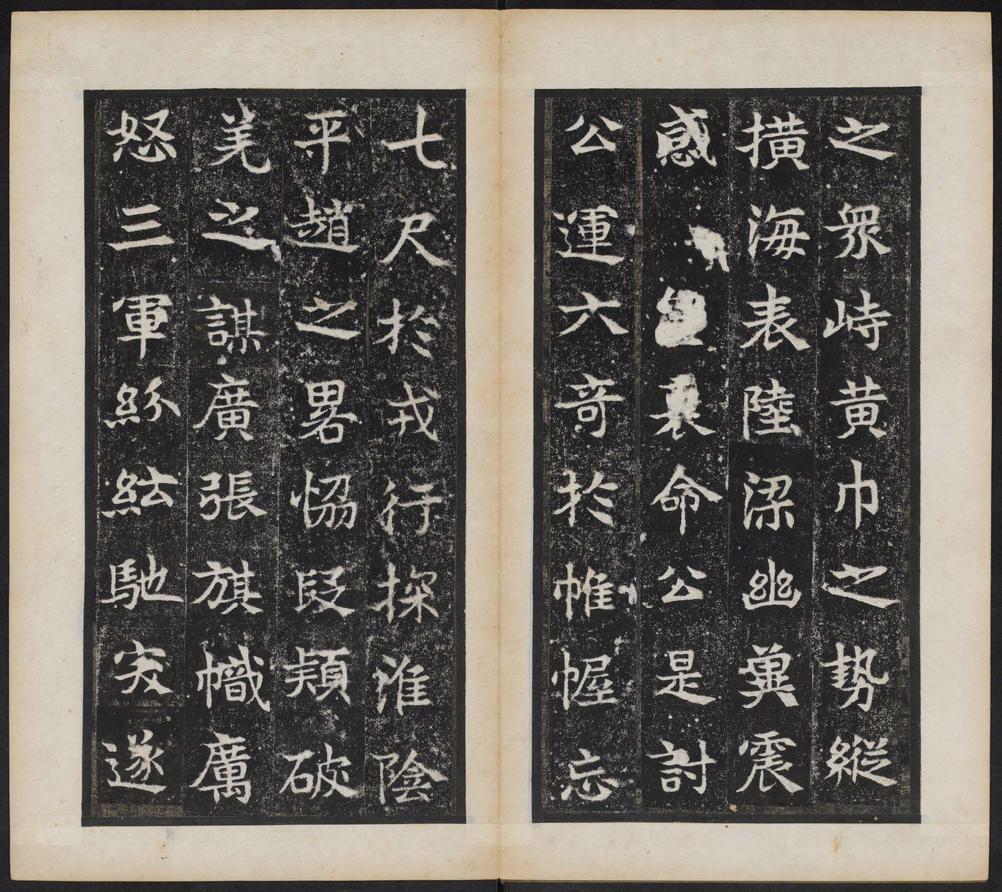 之眾峙黄巾之勢縱
擴海表陸梁幽冀震
惑袞命公是討
公運六奇於帷幄忘
七尺於戎行探淮陰
平趙之畧恊段熲破
羌之謀廣張旗幟厲
怒三軍紛紜馳突遂